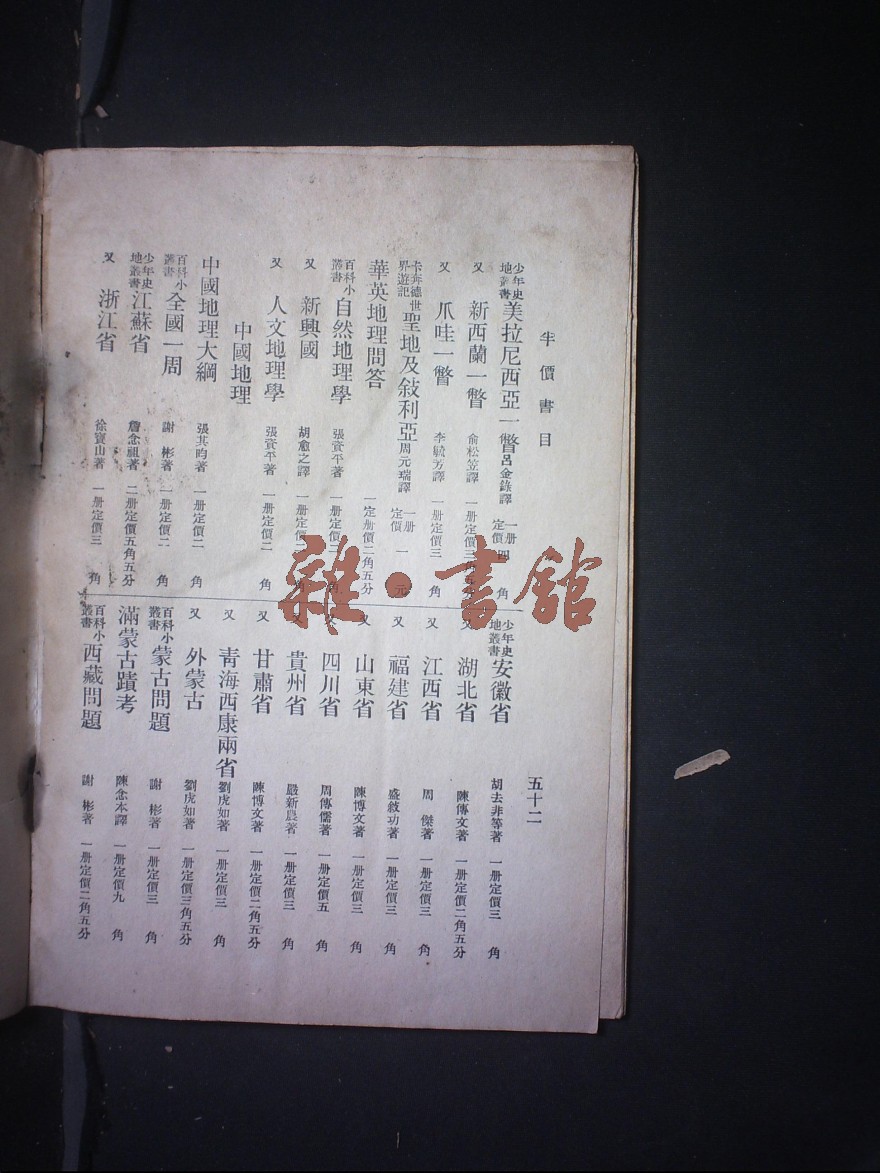 半價書目
少年史地叢書 美拉尼西亞一瞥 呂金錄譯 一册定價四角
又 新西蘭一瞥 俞松笠譯 一册定價三角五分
又 爪哇一瞥 李毓芳譯 一册定價三
卡奔德世界遊記 聖地及敍利亞 周元瑞譯 一册定價一元
華英地理問答 一册定價二角五分
百科小叢書 自然地理學 張資平著 一册定價二角
又 新興國 胡愈之譯 一册定價二角
又 人文地理學 張資平著 一册定價二角
中國地理
中國地理大綱 張其昀著 一册定價二角
百科小叢書 全國一周 謝彬著 一册定價二角
少年史地叢書 江蘇省 詹念祖著 二册定價五角五分
又 浙江省 徐寶山著 一册定價三角
少年史地叢書 安徽省 胡去非等著 一册定價三角
又 湖北省 陳博文著 一册定價二角五分
又 江西省 周傑著 一册定價三角
又 福建省 盛敍功著 一册定價三角
又 山東省 陳博文著 一册定價三角
又 四川省 周傳儒著 一册定價五角
又 貴州省 嚴新農著 一册定價三角
又 甘肅省 陳博文著 一册定價二角五分
又 靑海西康兩省 劉虎如著 一册定價三角
又 外蒙古 劉虎如著 一册定價三角五分
百科小叢書 蒙古問題 謝彬著 一册定價三角
滿蒙古蹟考 陳念本譯 一册定價九角
百科小叢書 西藏問題 謝彬著 一册定價二角五分
五十二
雜·書館